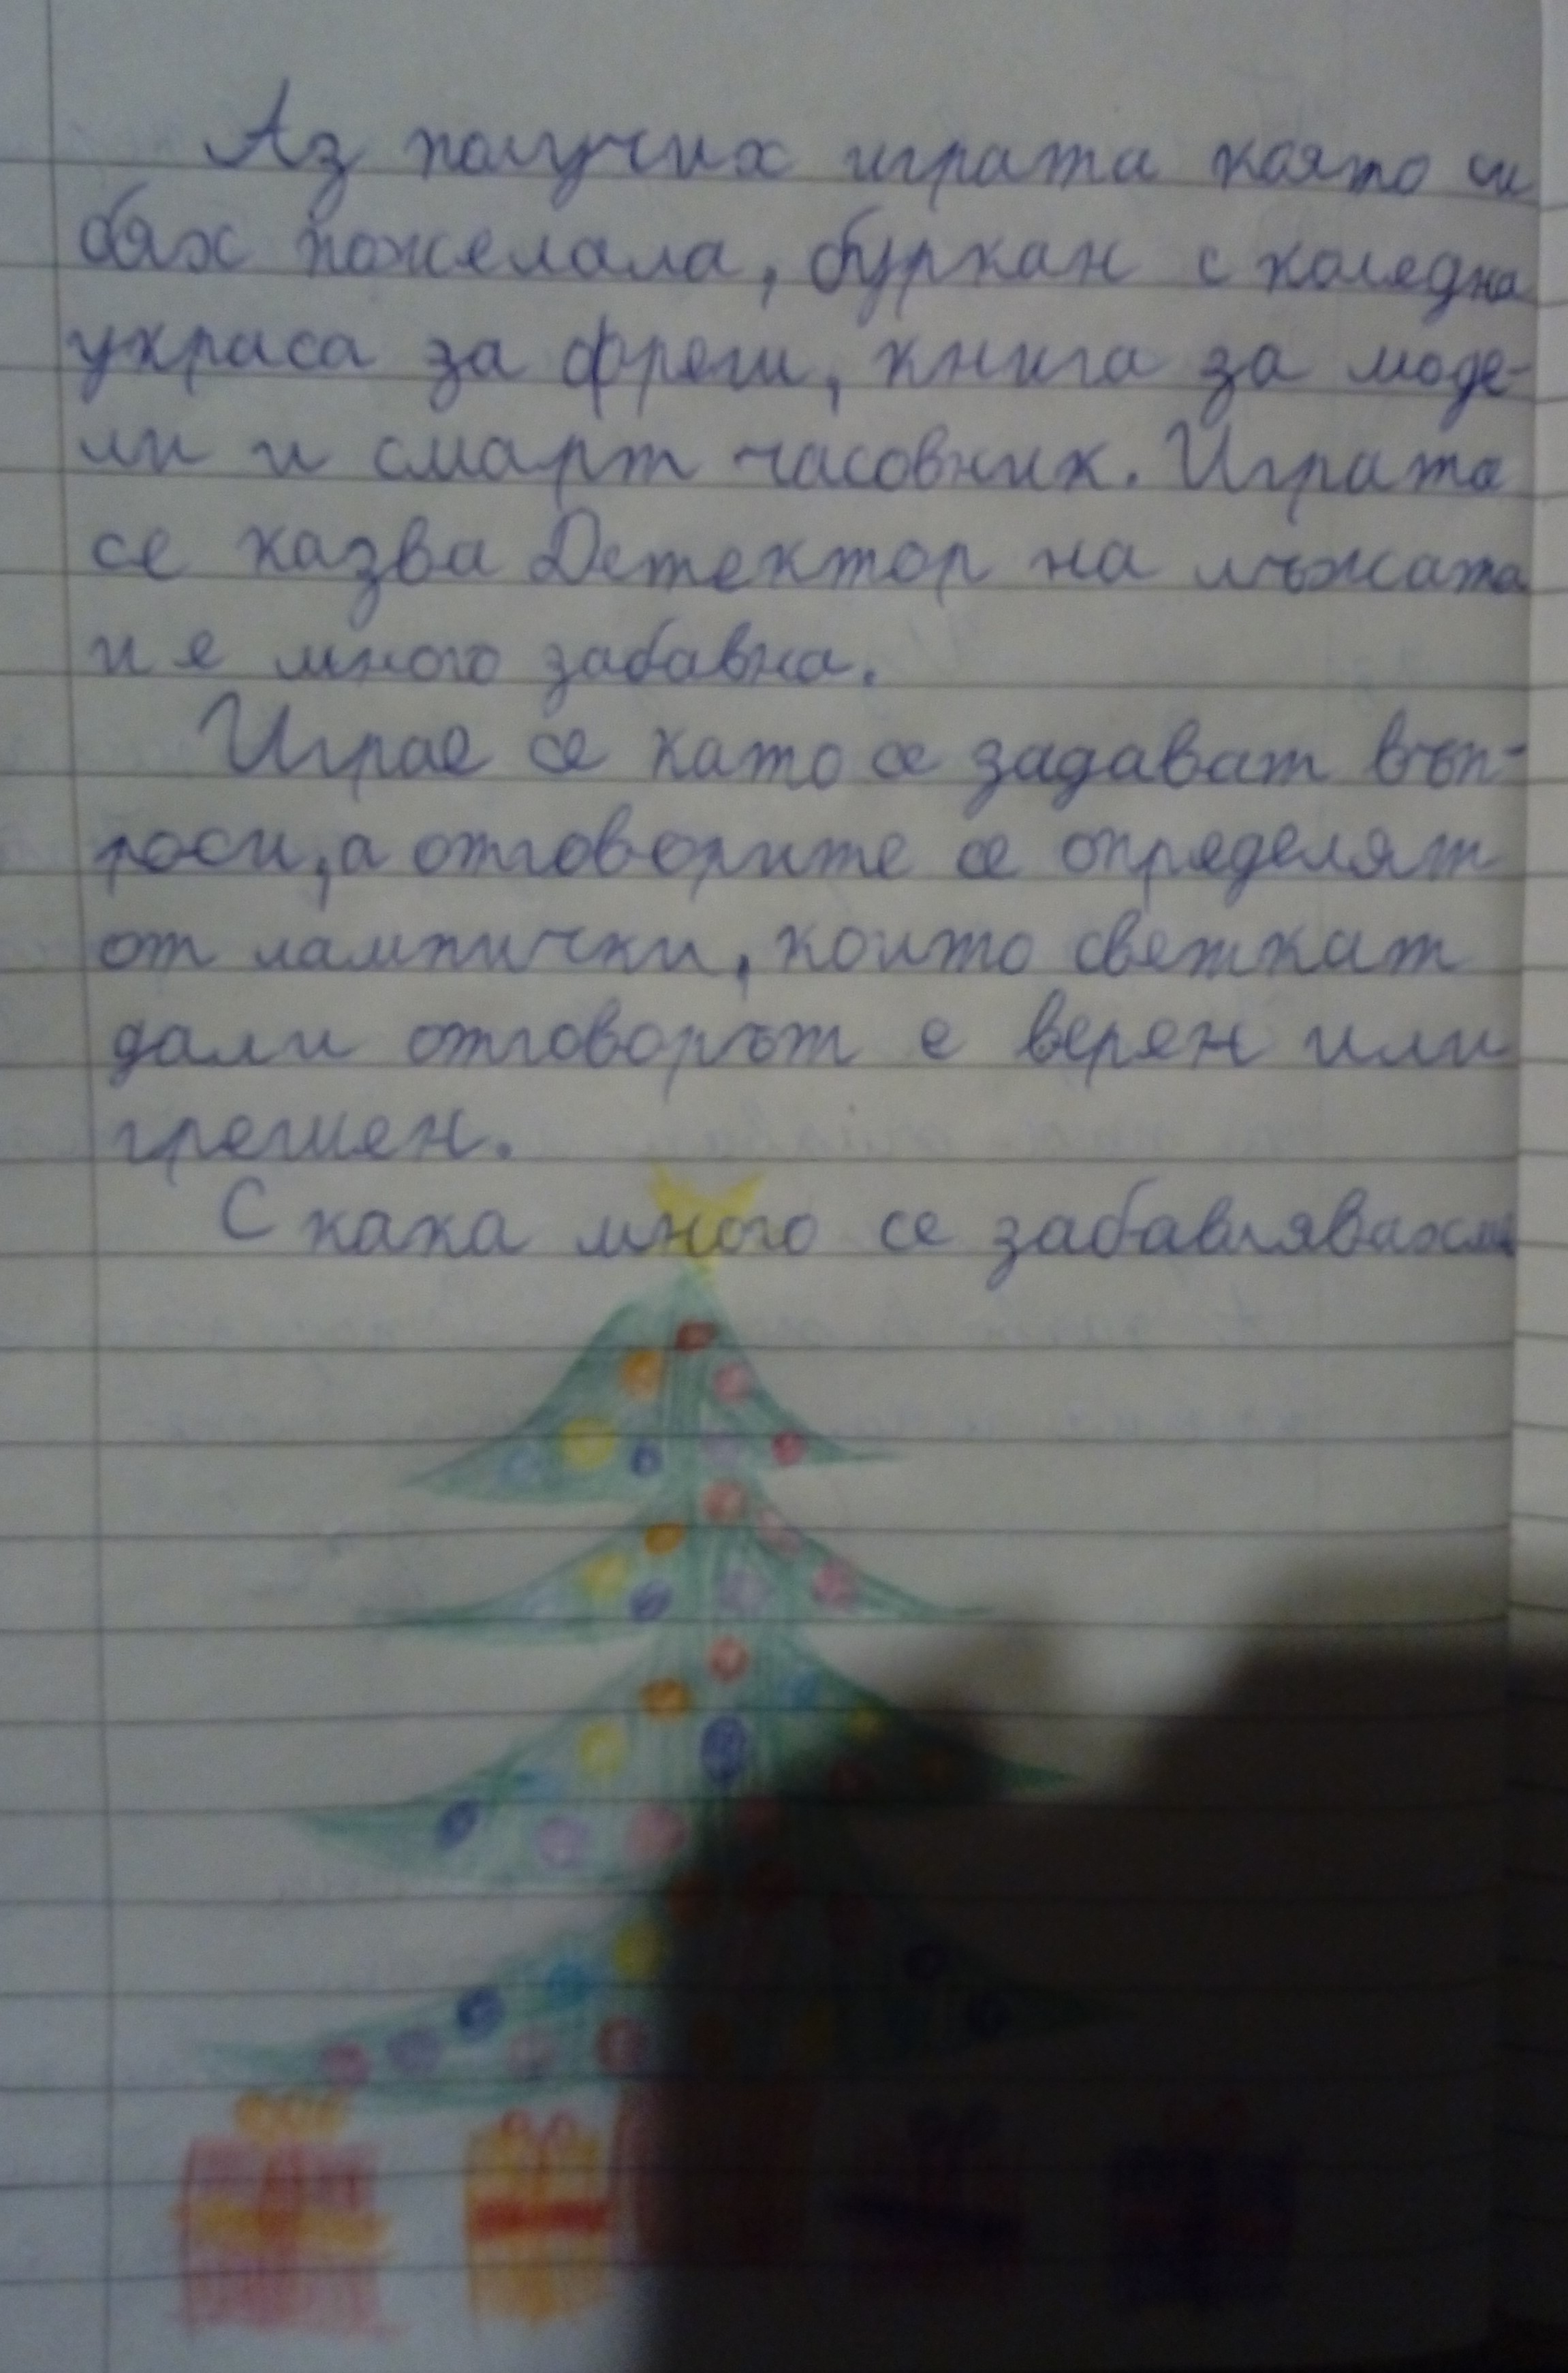 Аз получих играта която си
бях пожелала, буркан с коледна
украса за фреш, книга за моде-
ли и смарт часовник. Играта
се казва Детектор на лъжата
и е много забавна.
Играе се като се задават въп-
роси, а отговорите се определят
от лампички, които светкат
дали отговорът е верен или
грешен.
С кака много се забавлявахме